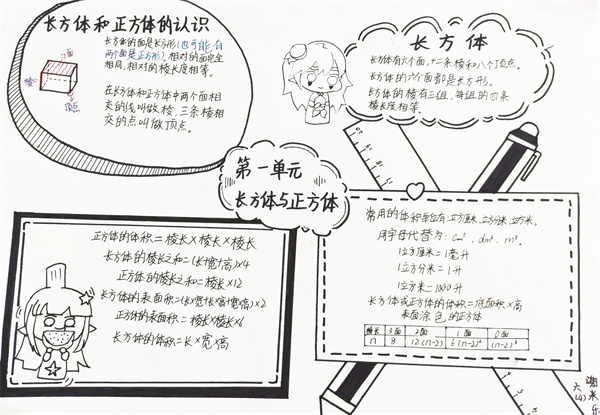 长方体和正方体的认识
长方体的面是长方形(也可能有
两个面是正方形),相对的面完全
相同,相对的棱长度相等。
面
棱
顶点
在长方体和正方体中两个面相
交的线叫做棱,三条棱相
交的点叫做顶点。
长方体
长方体有六个面,十二条棱和八个顶点。
长方体的六个面都是长方形。
长方体的棱有三组,每组的四条
棱长度相等。
第一单元
长方体与正方体
正方体的体积=棱长×棱长×棱长
长方体的棱长之和=(长+宽+高)×4
正方体的棱长之和=棱长×12
长方体的表面积=(长×宽+长×高+宽×高)×2
正方体的表面积=棱长×棱长×6
长方体的体积=长×宽×高
常用的体积单位有:立方厘米、立方分米、立方米。
用字母代替为:cm³、dm³、m³。
1立方厘米=1毫升
1立方分米=1升
1立方米=1000升
长方体或正方体的体积=底面积×高
表面涂色的正方体
棱长 3面 2面 1面 0面
n 8 12(n-2) 6(n-2)² (n-2)³
六(4)